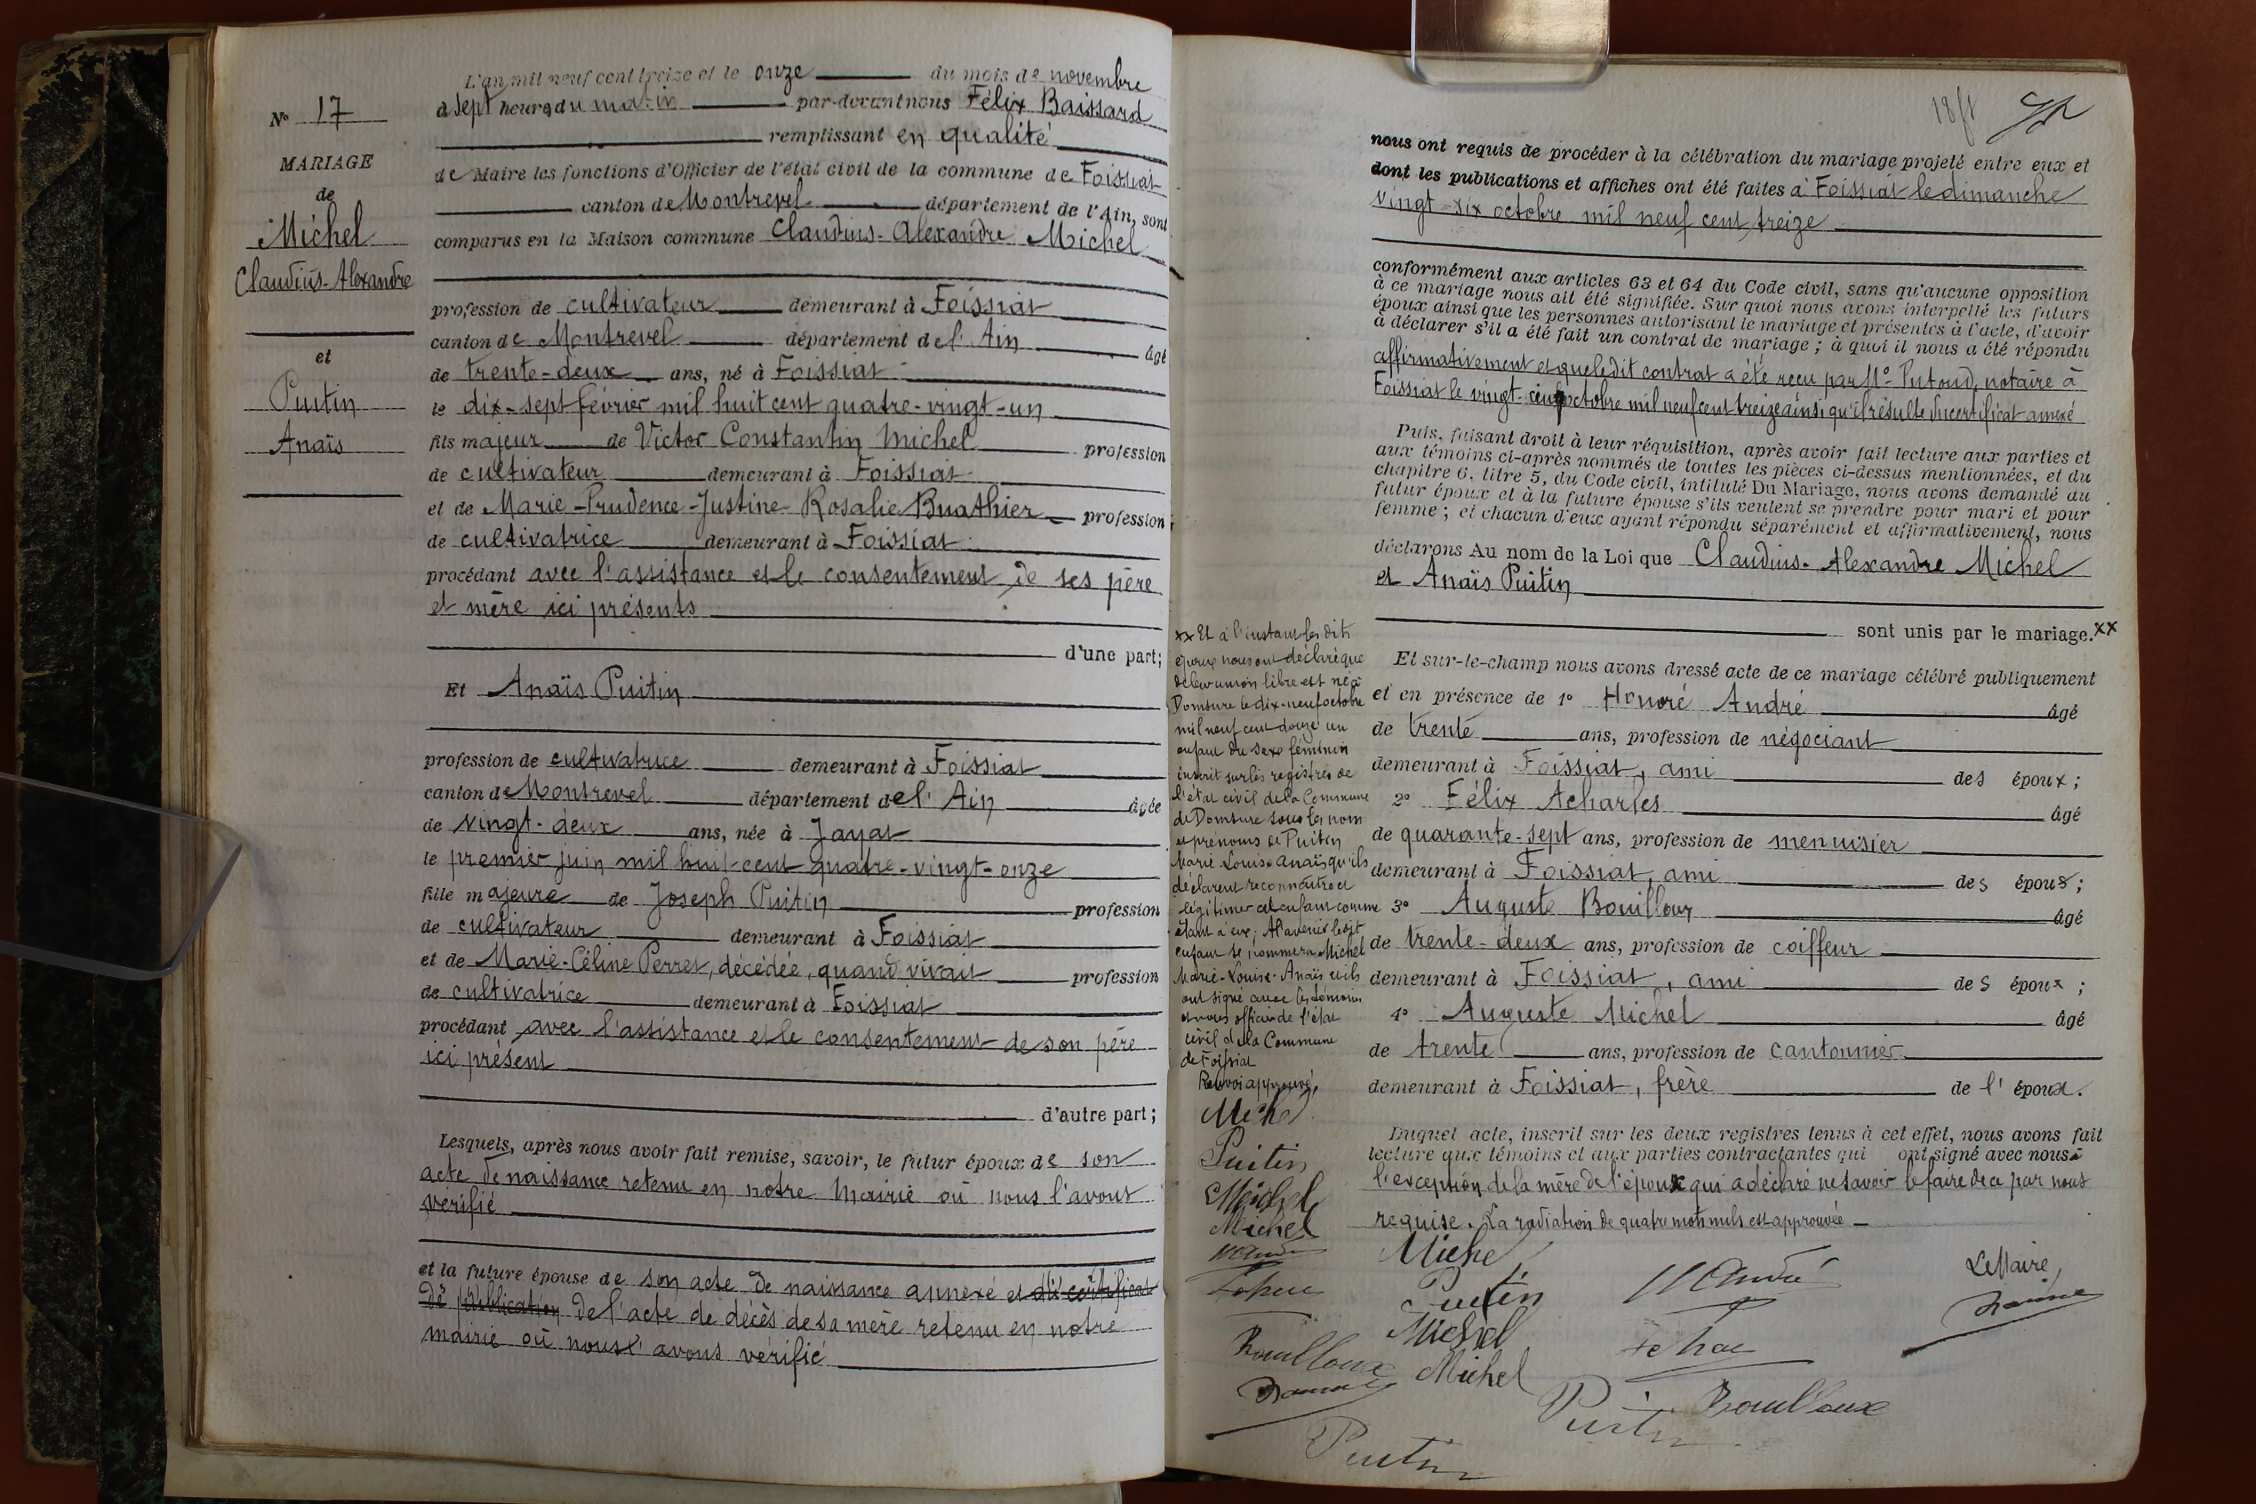 N° 17
MARIAGE
de
Michel
Claudius-Alexandre
et
Puitin
Anaïs
L'an mil neuf cent treize et le onze du mois de novembre
à sept heures du matin par-devant nous Félix Baissard
remplissant en qualité
de Maire les fonctions d'Officier de l'état civil de la commune de Foissiat
canton de Montrevel département de l'Ain, sont
comparus en la Maison commune Claudius-Alexandre Michel
profession de cultivateur demeurant à Foissiat
canton de Montrevel département de l'Ain âgé
de trente-deux ans, né à Foissiat
le dix-sept février mil huit cent quatre-vingt-un
fils majeur de Victor Constantin Michel profession
de cultivateur demeurant à Foissiat
et de Marie-Prudence-Justine-Rosalie Buathier profession
de cultivatrice demeurant à Foissiat
procédant avec l'assistance et le consentement de ses père
et mère ici présents
d'une part;
Et Anaïs Puitin
profession de cultivatrice demeurant à Foissiat
canton de Montrevel département de l'Ain âgée
de vingt-deux ans, née à Jayat
le premier juin mil huit-cent quatre-vingt-onze
fille majeure de Joseph Puitin profession
de cultivateur demeurant à Foissiat
et de Marie-Céline Perret, décédée, quand vivait profession
de cultivatrice demeurant à Foissiat
procédant avec l'assistance et le consentement de son père
ici présent
d'autre part;
Lesquels, après nous avoir fait remise, savoir, le futur époux de son
acte de naissance retenu en notre Mairie où nous l'avons
vérifié
et la future épouse de son acte de naissance annexé et du certificat
de publication de l'acte de décès de sa mère retenu en notre
mairie où nous l'avons vérifié
nous ont requis de procéder à la célébration du mariage projeté entre eux et
dont les publications et affiches ont été faites à Foissiat le dimanche
vingt-six octobre mil neuf cent treize
conformément aux articles 63 et 64 du Code civil, sans qu'aucune opposition
à ce mariage nous ait été signifiée. Sur quoi nous avons interpellé les futurs
époux ainsi que les personnes autorisant le mariage et présentes à l'acte, d'avoir
à déclarer s'il a été fait un contrat de mariage; à quoi il nous a été répondu
affirmativement et que le dit contrat a été reçu par Me Putoud, notaire à
Foissiat le vingt-cinq octobre mil neuf cent treize ainsi qu'il résulte du certificat annexé
Puis, faisant droit à leur réquisition, après avoir fait lecture aux parties et
aux témoins ci-après nommés de toutes les pièces ci-dessus mentionnées, et du
chapitre 6, titre 5, du Code civil, intitulé Du Mariage, nous avons demandé au
futur époux et à la future épouse s'ils veulent se prendre pour mari et pour
femme; et chacun d'eux ayant répondu séparément et affirmativement, nous
déclarons Au nom de la Loi que Claudius-Alexandre Michel
et Anaïs Puitin
sont unis par le mariage.xx
Et sur-le-champ nous avons dressé acte de ce mariage célébré publiquement
et en présence de 1° Honoré André âgé
de trente ans, profession de négociant
demeurant à Foissiat, ami des époux;
2° Félix Acharles âgé
de quarante-sept ans, profession de menuisier
demeurant à Foissiat, ami des époux;
3° Auguste Bouilloux âgé
de trente-deux ans, profession de coiffeur
demeurant à Foissiat, ami des époux;
4° Auguste Michel âgé
de trente ans, profession de cantonnier
demeurant à Foissiat, frère de l'époux.
Duquel acte, inscrit sur les deux registres tenus à cet effet, nous avons fait
lecture aux témoins et aux parties contractantes qui ont signé avec nous à
l'exception de la mère de l'époux qui a déclaré ne savoir le faire de ce par nous
requise. La radiation de quatre mots nuls est approuvée
xx Et à l'instant les dits
époux nous ont déclaré que
de leur union libre est né à
Domsure le dix-neuf octobre
mil neuf cent douze un
enfant du sexe féminin
inscrit sur les registres de
l'état civil de la Commune
de Domsure sous les nom
et prénoms de Puitin
Marie-Louise Anaïs qu'ils
déclarent reconnaître et
légitimer cet enfant comme
étant à eux; A l'avenir le dit
enfant se nommera Michel
Marie-Louise-Anaïs et ils
ont signé avec les témoins
et nous officier de l'état
civil de la Commune
de Foissiat
Renvoi approuvé,
Michel
Puitin
Michel
Michel
H André
Bouilloux
Puitin
Michel
Puitin
Michel
Michel
H André
Puitin
Bouilloux
Le Maire,